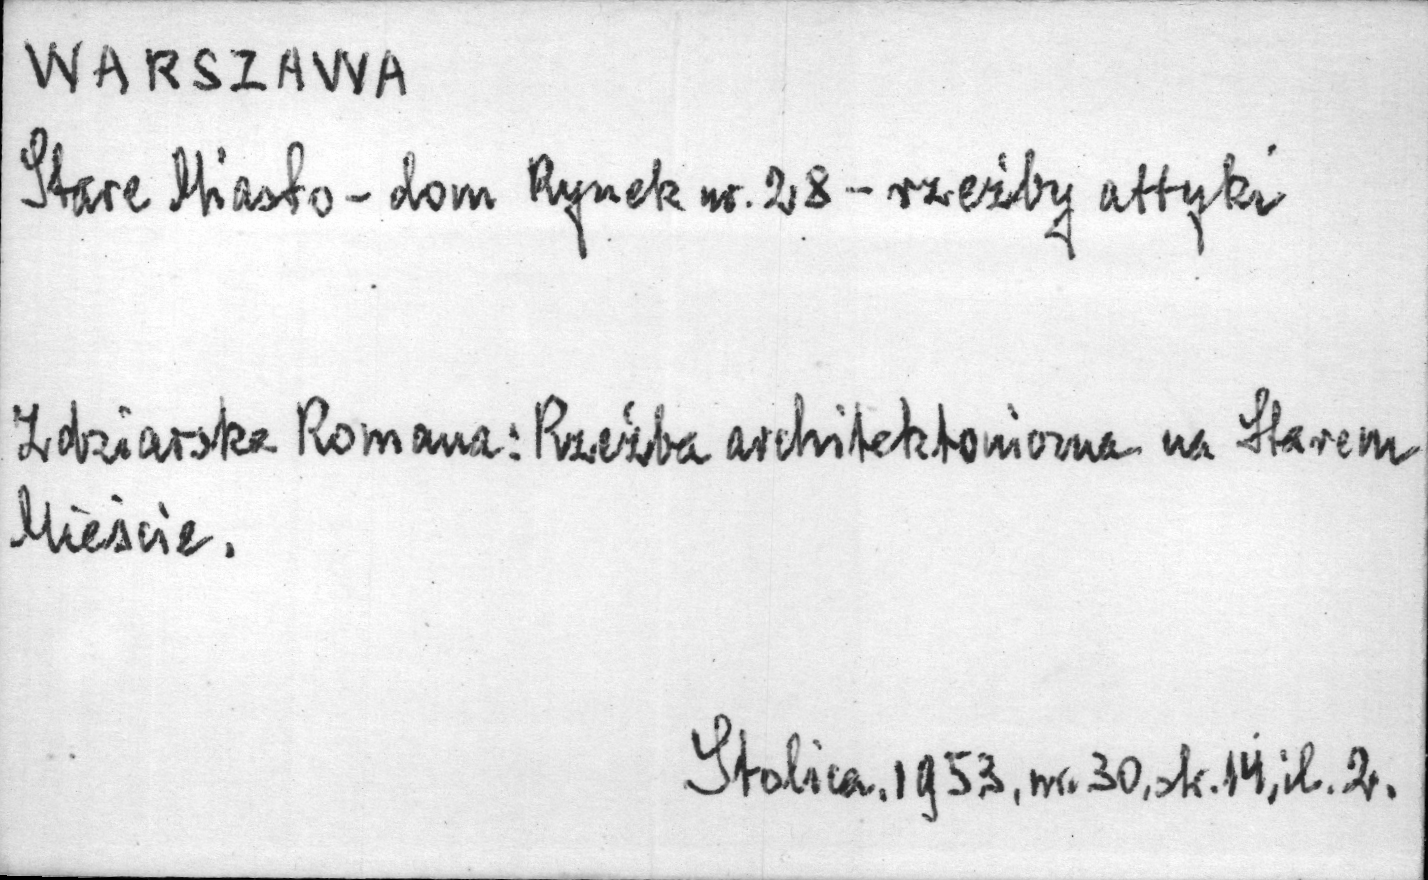 WARSZAWA
Stare Miasto - dom Rynek nr. 28 - rzeźby attyki
Zdziarska Romana: Rzeźba architektoniczna na Starem
Mieście.
Stolica. 1953, nr. 30, st. 14, il. 2.